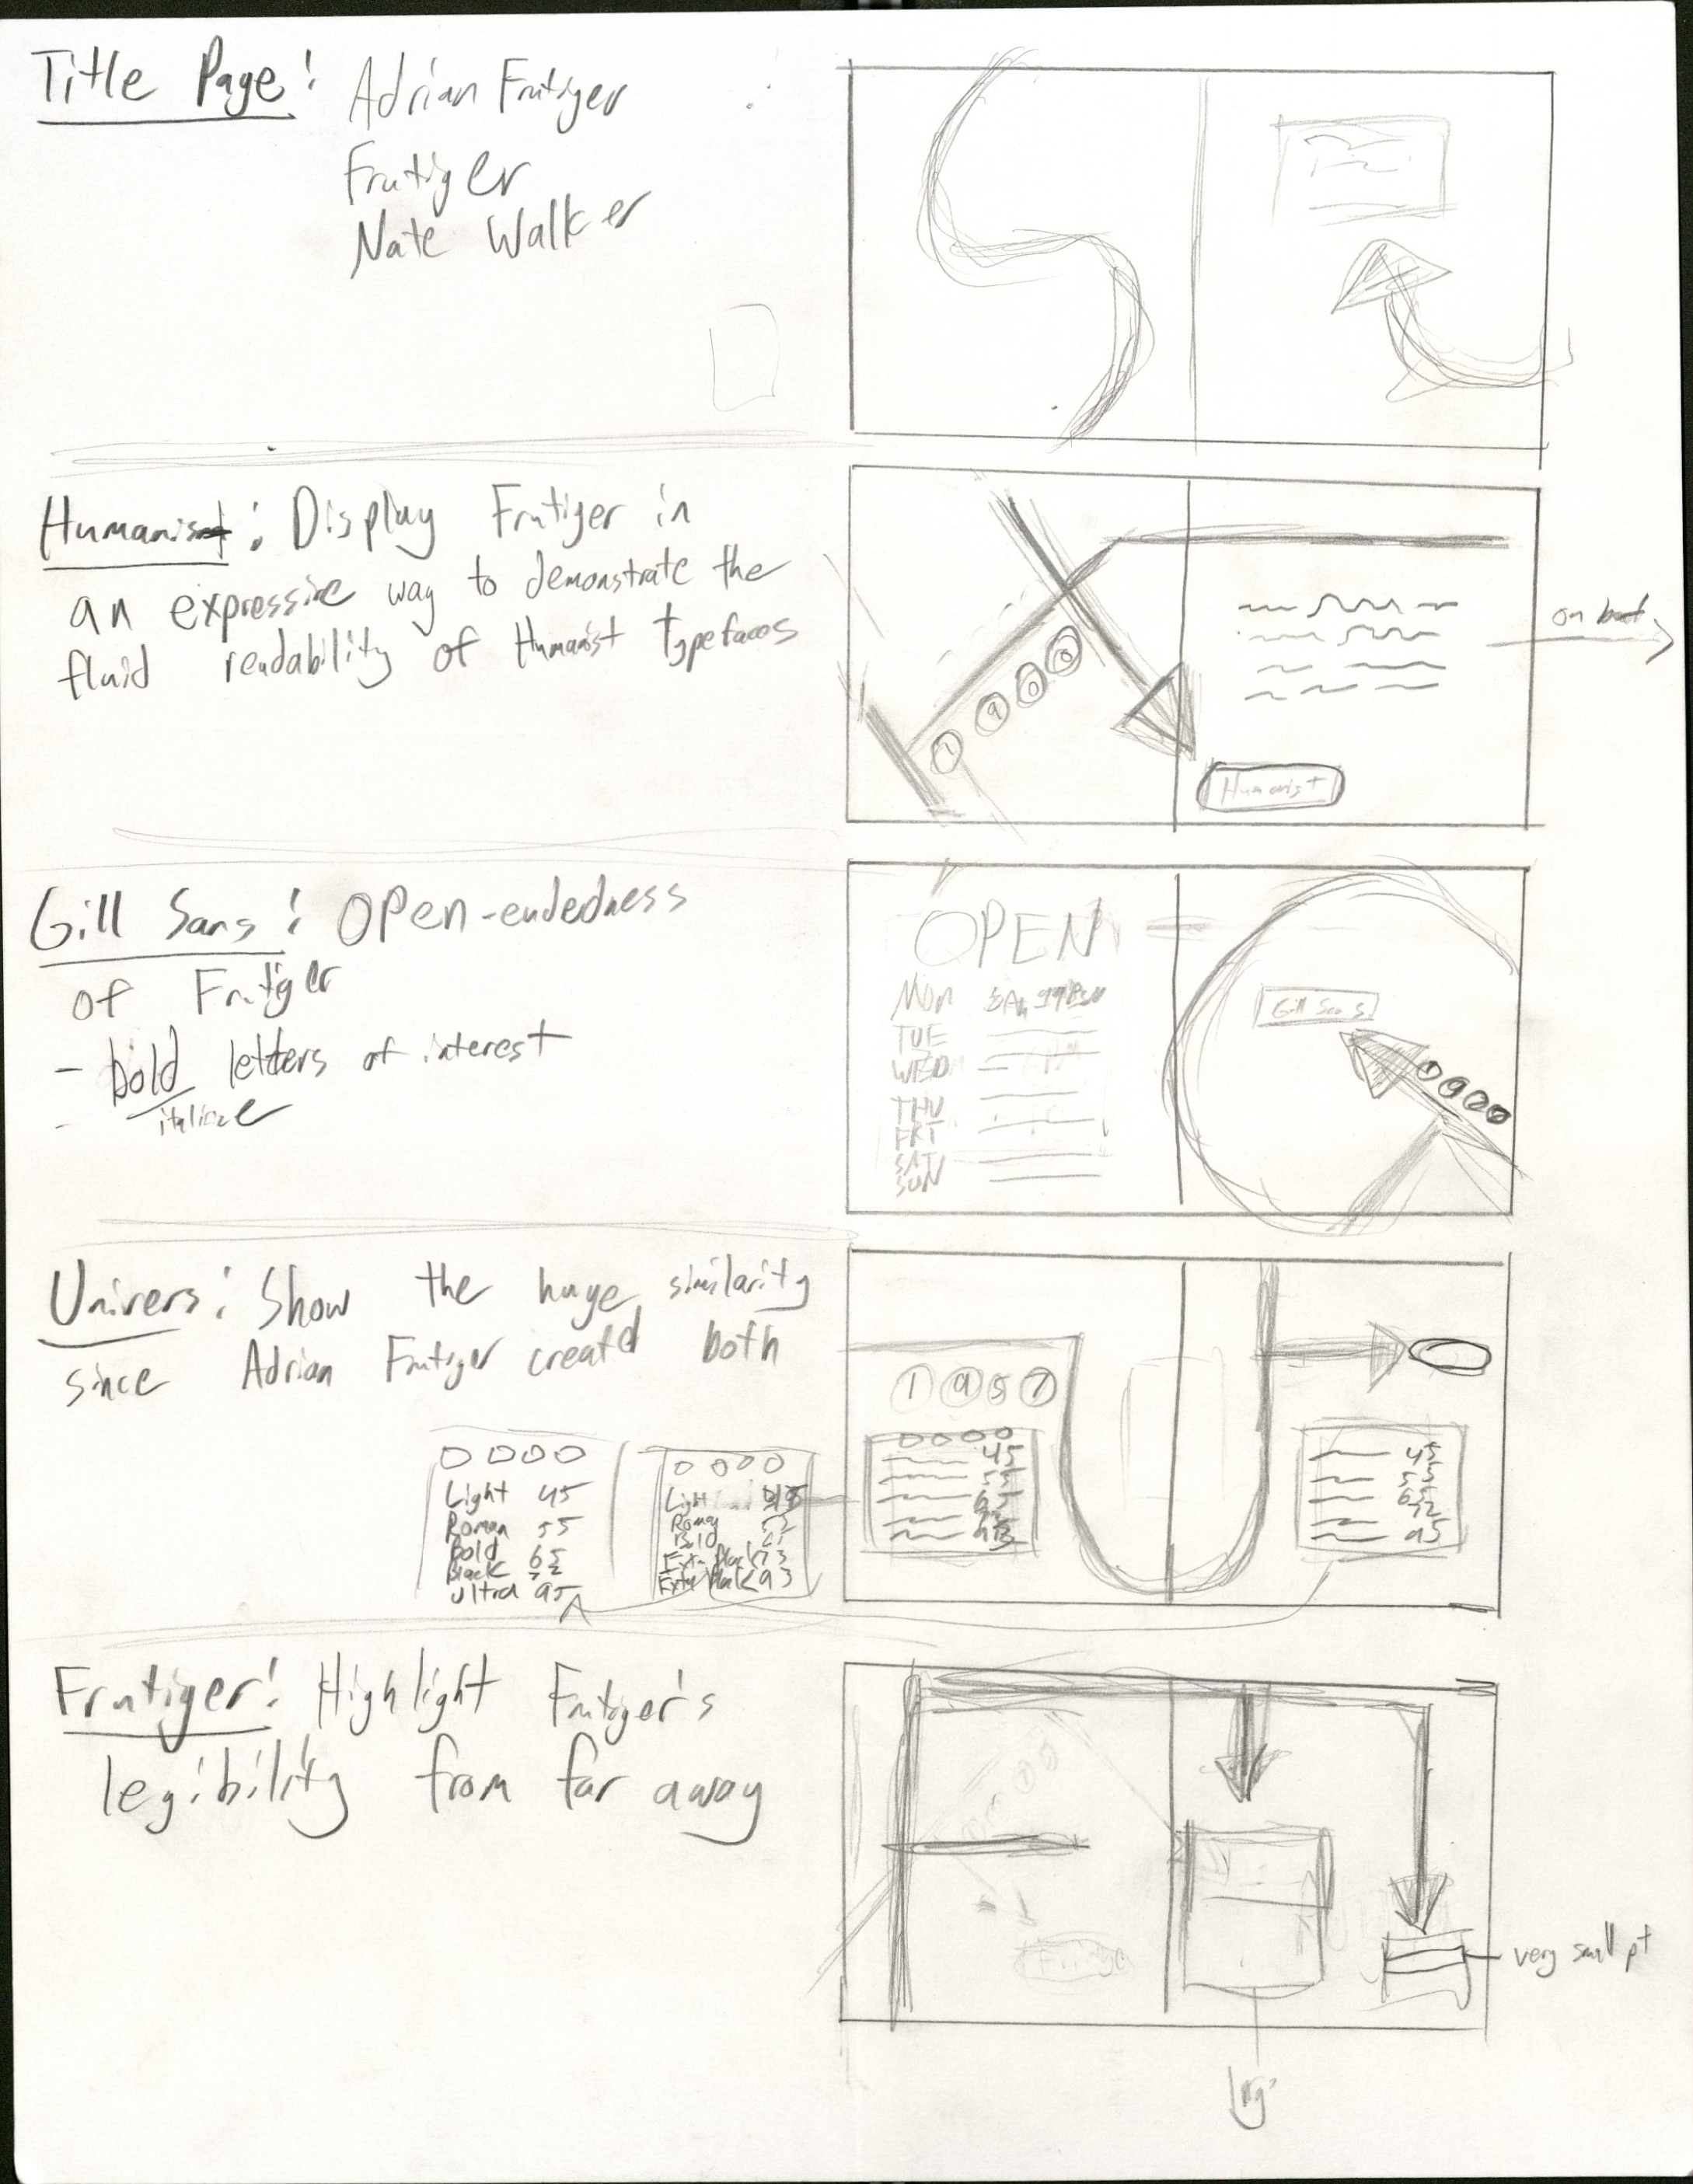 Title Page: Adrian Frutiger
Frutiger
Nate Walker
Humanist: Display Frutiger in
an expressive way to demonstrate the
fluid readability of Humanist typefaces
1 9 0 0
on
Humanist
Gill Sans: OPen-endedness
of Frutiger
- bold letters of interest
- italicize
OPEN
Mon
TUE
WED
THU
FRI
SAT
SUN
Gill Sans
Univers: Show the huge similarity
since Adrian Frutiger created both
1 9 5 7
Light 45
Roman 55
Bold 65
Black
Ultra 95
Light
Roman
Bold
Extra Black
45
55
65
45
55
65
95
Frutiger: Highlight Frutiger's
legibility from far away
very small pt